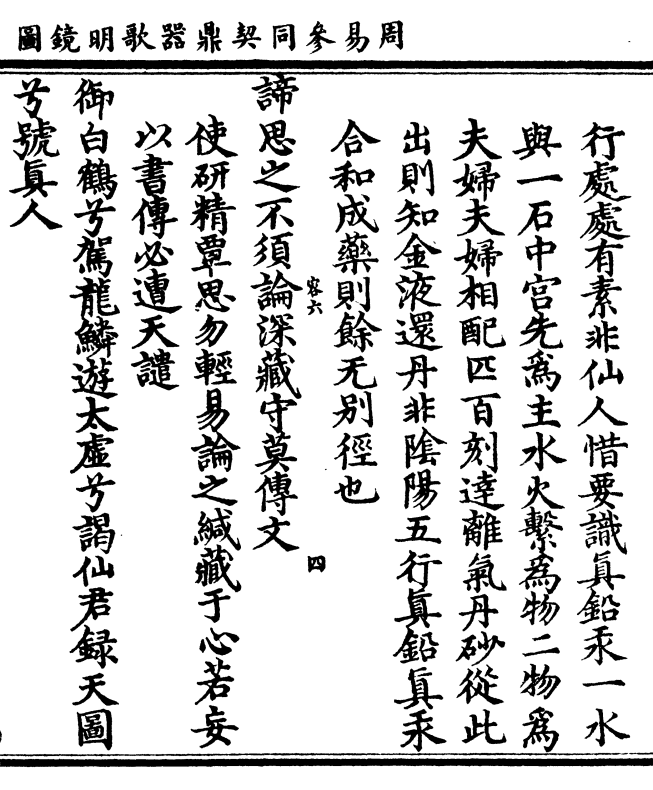 周易參同契鼎器歌明鏡圖
行處處有素非仙人惜要識眞鉛汞一水
與一石中宮先爲主水火繫爲物二物爲
夫婦夫婦相配匹百刻達離氣丹砂從此
出則知金液還丹非陰陽五行眞鉛眞汞
合和成藥則餘无别徑也
容六
四
諦思之不須論深藏守莫傳文
使研精覃思勿輕易論之緘藏于心若妄
以書傳必遭天譴
御白鶴兮駕龍鱗遊太虛兮謁仙君録天圖
兮號眞人